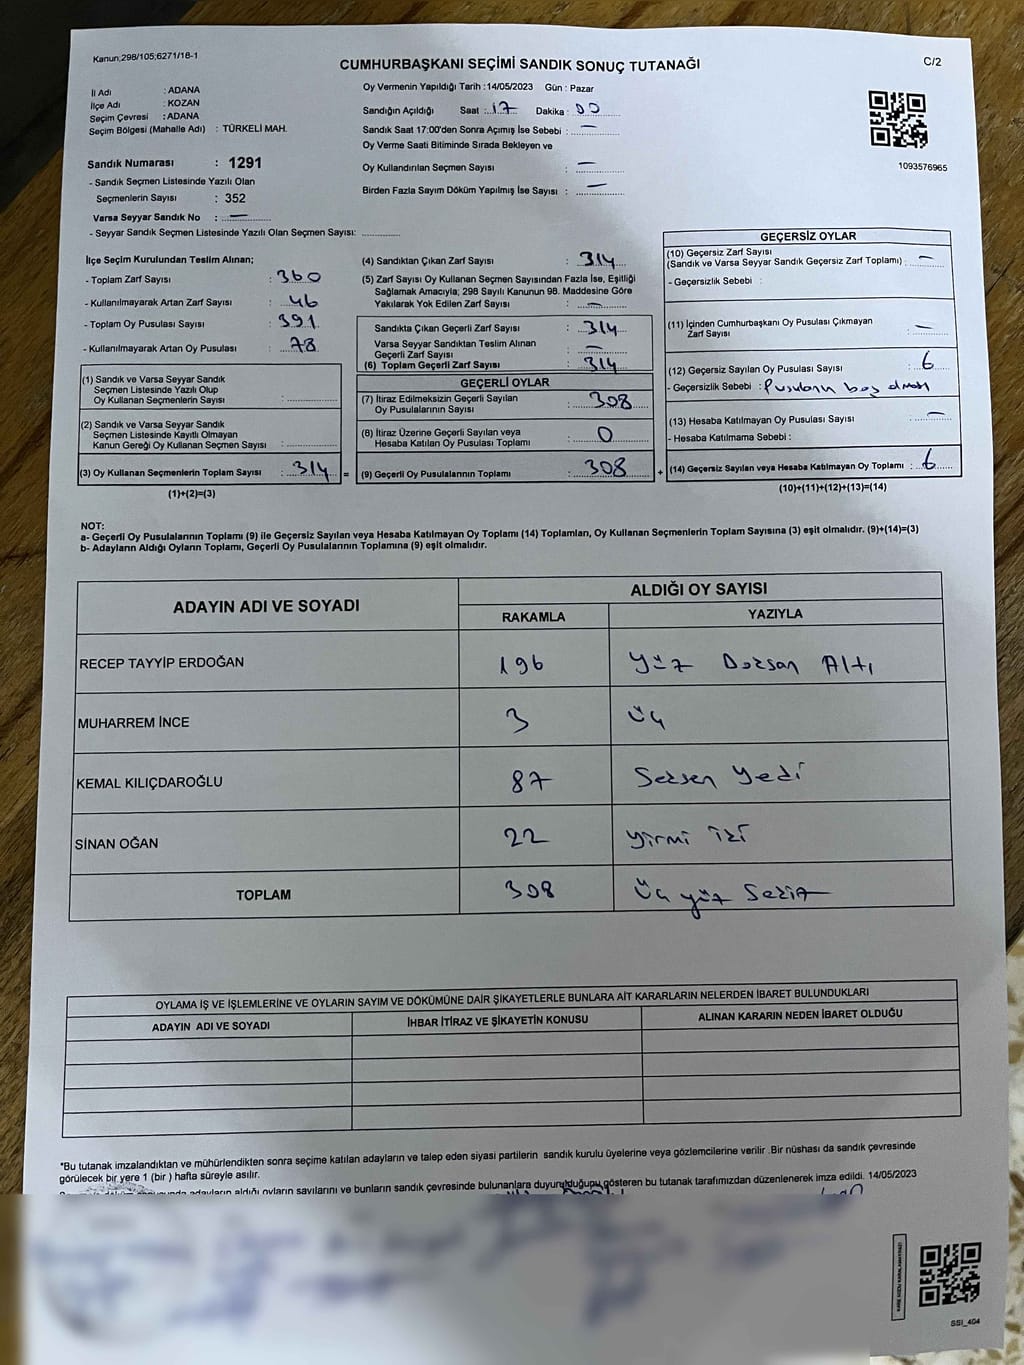 Kanun;298/105;6271/18-1
CUMHURBAŞKANI SEÇİMİ SANDIK SONUÇ TUTANAĞI
C/2
İl Adı : ADANA
İlçe Adı : KOZAN
Seçim Çevresi : ADANA
Seçim Bölgesi (Mahalle Adı) : TÜRKELİ MAH.
Sandık Numarası : 1291
- Sandık Seçmen Listesinde Yazılı Olan
Seçmenlerin Sayısı : 352
Varsa Seyyar Sandık No : —
- Seyyar Sandık Seçmen Listesinde Yazılı Olan Seçmen Sayısı:
Oy Vermenin Yapıldığı Tarih :14/05/2023 Gün : Pazar
Sandığın Açıldığı Saat : 17 Dakika : 00
Sandık Saat 17:00'den Sonra Açımış İse Sebebi : —
Oy Verme Saati Bitiminde Sırada Bekleyen ve
Oy Kullandırılan Seçmen Sayısı : —
Birden Fazla Sayım Döküm Yapılmış İse Sayısı : —
1093576965
İlçe Seçim Kurulundan Teslim Alınan;
- Toplam Zarf Sayısı : 360
- Kullanılmayarak Artan Zarf Sayısı : 46
- Toplam Oy Pusulası Sayısı : 391
- Kullanılmayarak Artan Oy Pusulası : 78
(1) Sandık ve Varsa Seyyar Sandık
Seçmen Listesinde Yazılı Olup
Oy Kullanan Seçmenlerin Sayısı :
(2) Sandık ve Varsa Seyyar Sandık
Seçmen Listesinde Kayıtlı Olmayan
Kanun Gereği Oy Kullanan Seçmen Sayısı :
(3) Oy Kullanan Seçmenlerin Toplam Sayısı : 314 =
(1)+(2)=(3)
(4) Sandıktan Çıkan Zarf Sayısı : 314
(5) Zarf Sayısı Oy Kullanan Seçmen Sayısından Fazla İse, Eşitliği
Sağlamak Amacıyla; 298 Sayılı Kanunun 98. Maddesine Göre
Yakılarak Yok Edilen Zarf Sayısı : —
Sandıkta Çıkan Geçerli Zarf Sayısı : 314
Varsa Seyyar Sandıktan Teslim Alınan
Geçerli Zarf Sayısı : —
(6) Toplam Geçerli Zarf Sayısı : 314
GEÇERLİ OYLAR
(7) İtiraz Edilmeksizin Geçerli Sayılan
Oy Pusulalarının Sayısı : 308
(8) İtiraz Üzerine Geçerli Sayılan veya
Hesaba Katılan Oy Pusulası Toplamı : 0
(9) Geçerli Oy Pusulalarının Toplamı : 308 +
GEÇERSİZ OYLAR
(10) Geçersiz Zarf Sayısı
(Sandık ve Varsa Seyyar Sandık Geçersiz Zarf Toplamı) : —
- Geçersizlik Sebebi :
(11) İçinden Cumhurbaşkanı Oy Pusulası Çıkmayan
Zarf Sayısı : —
(12) Geçersiz Sayılan Oy Pusulası Sayısı : 6
- Geçersizlik Sebebi : Pusulanın boş olması
(13) Hesaba Katılmayan Oy Pusulası Sayısı : —
- Hesaba Katılmama Sebebi :
(14) Geçersiz Sayılan veya Hesaba Katılmayan Oy Toplamı : 6
(10)+(11)+(12)+(13)=(14)
NOT:
a- Geçerli Oy Pusulalarının Toplamı (9) ile Geçersiz Sayılan veya Hesaba Katılmayan Oy Toplamı (14) Toplamları, Oy Kullanan Seçmenlerin Toplam Sayısına (3) eşit olmalıdır. (9)+(14)=(3)
b- Adayların Aldığı Oyların Toplamı, Geçerli Oy Pusulalarının Toplamına (9) eşit olmalıdır.
ADAYIN ADI VE SOYADI
ALDIĞI OY SAYISI
RAKAMLA YAZIYLA
RECEP TAYYİP ERDOĞAN 196 Yüz Doksan Altı
MUHARREM İNCE 3 Üç
KEMAL KILIÇDAROĞLU 87 Seksen Yedi
SİNAN OĞAN 22 Yirmi iki
TOPLAM 308 Üç yüz Sekiz
OYLAMA İŞ VE İŞLEMLERİNE VE OYLARIN SAYIM VE DÖKÜMÜNE DAİR ŞİKAYETLERLE BUNLARA AİT KARARLARIN NELERDEN İBARET BULUNDUKLARI
ADAYIN ADI VE SOYADI İHBAR İTİRAZ VE ŞİKAYETİN KONUSU ALINAN KARARIN NEDEN İBARET OLDUĞU
*Bu tutanak imzalandıktan ve mühürlendikten sonra seçime katılan adayların ve talep eden siyasi partilerin sandık kurulu üyelerine veya gözlemcilerine verilir .Bir nüshası da sandık çevresinde
görülecek bir yere 1 (bir ) hafta süreyle asılır.
adayların aldığı oyların sayılarını ve bunların sandık çevresinde bulunanlara duyurulduğunu gösteren bu tutanak tarafımızdan düzenlenerek imza edildi. 14/05/2023
SSI_404